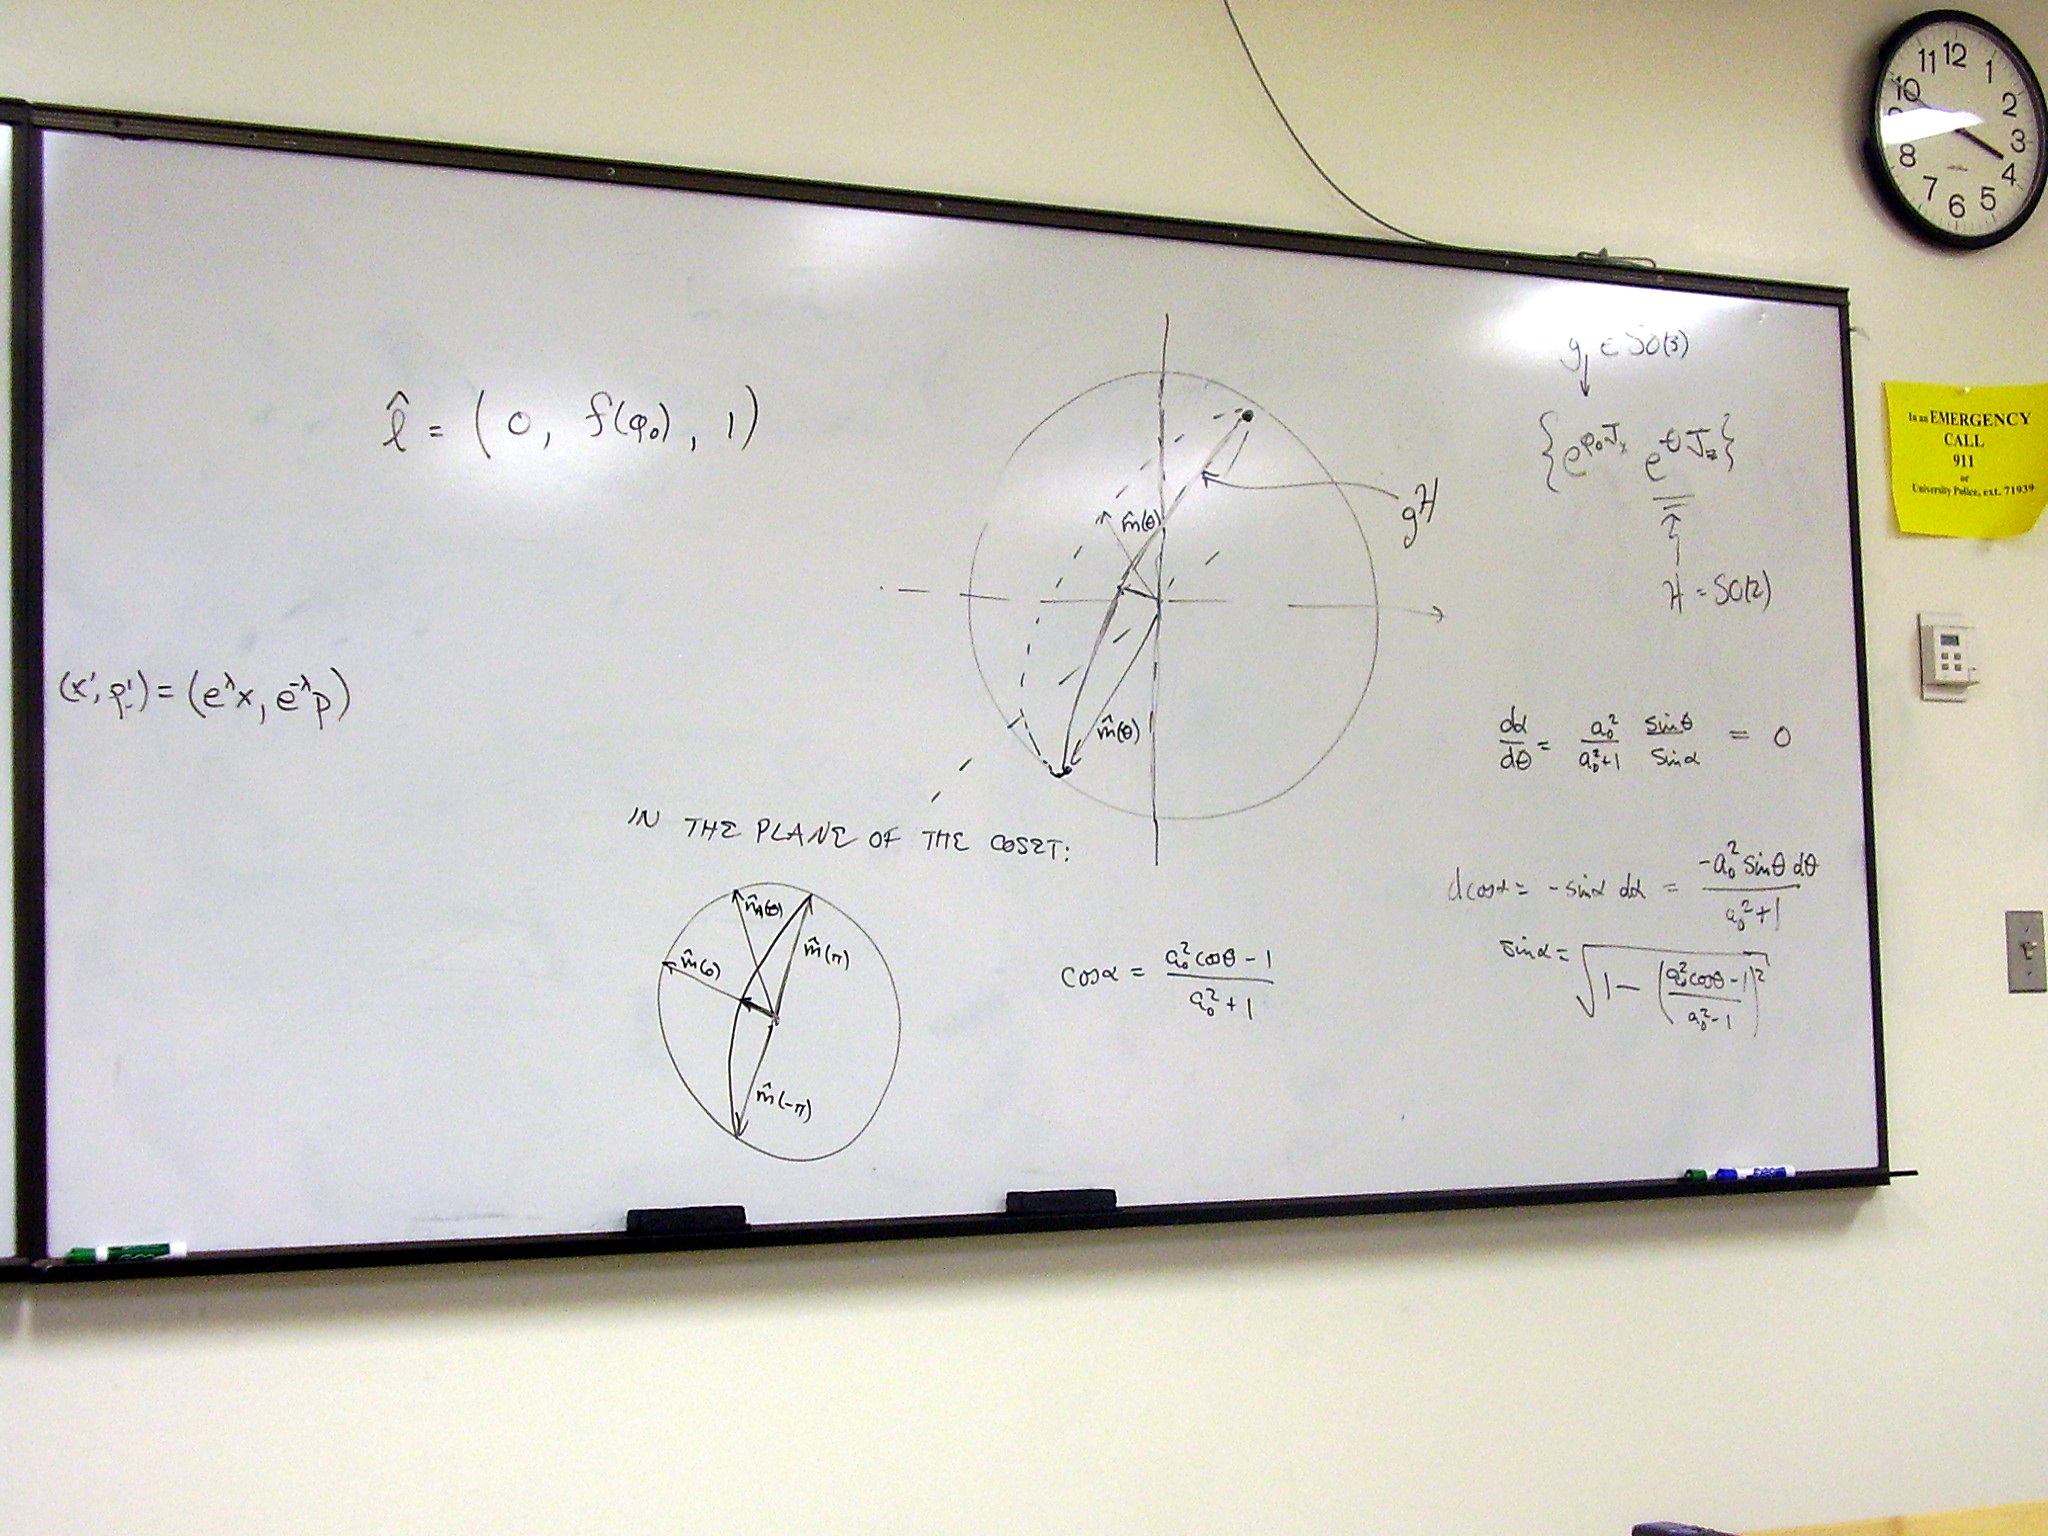 l̂ = ( 0, f(φ₀), 1)
(x', p') = (e^λ x, e^-λ p)
m̂(θ)
m̂(θ)
gH
g ∈ SO(3)
{e^φ₀Jₓ e^θJ_z}
H = SO(2)
dα/dθ = a₀²/a₀²+1 sinθ/sinα = 0
IN THE PLANE OF THE COSET:
m̂(θ)
m̂(0)
m̂(π)
m̂(-π)
cosα = a₀²cosθ - 1/a₀² + 1
dcosα = - sinα dα = -a₀² sinθ dθ/a₀² + 1
sinα = √1 - (a₀²cosθ - 1/a₀² - 1)²
11 12 1
10 2
3
8 4
7 6 5
In an EMERGENCY
CALL
911
or
University Police, ext. 71939